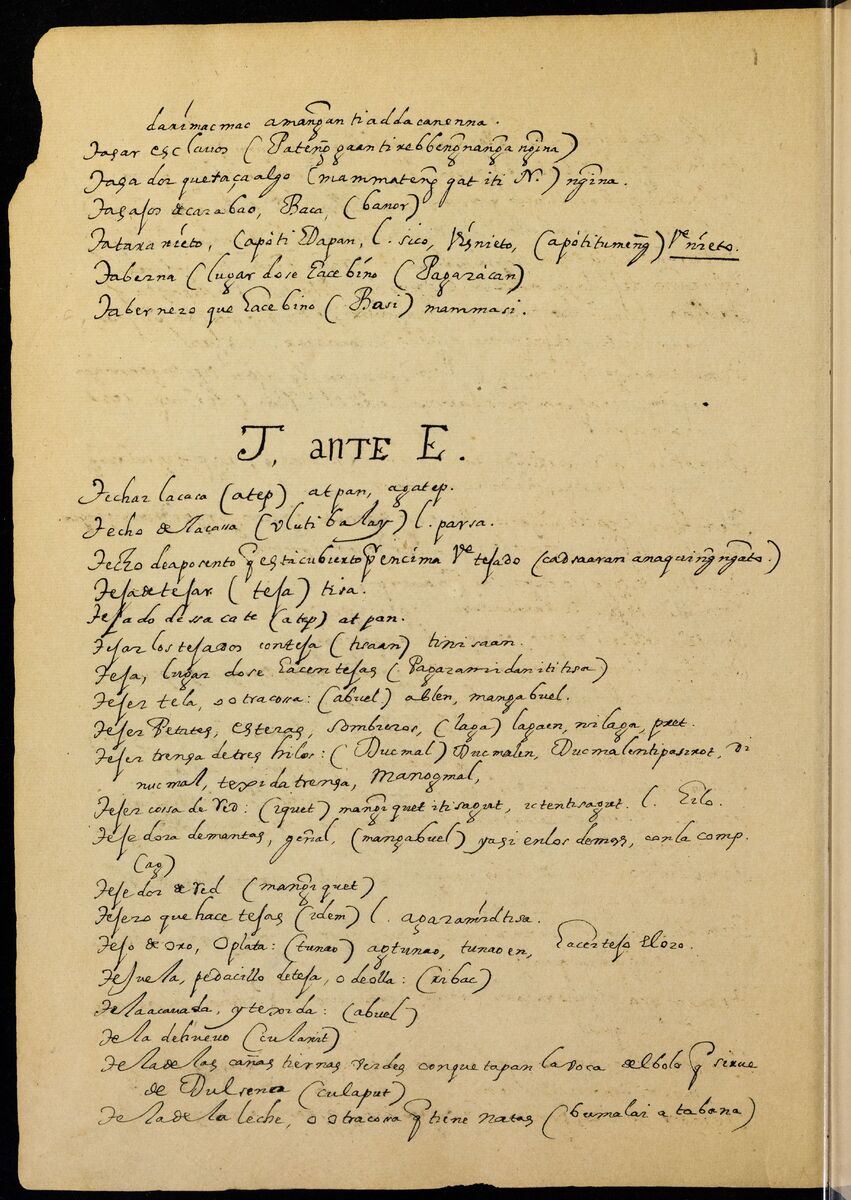 darimacmac amang̃an ti adda canenna.
Tasar esclauos (Pateng̃ gaan ti rebbeng̃nang̃a ng̃ina)
Tasador que taça algo (mammateng̃ gat iti N.) ng̃ina.
Tasajos de carabao, Baca, (banor)
Tatara nieto, (apóti Dapan, l. sico, Visnieto, (apótitumeng̃) Ve nieto.
Taberna (lugar dose hace bino (Pagarácan)
Tabernero que hace bino (Basi) mammasi.
T, ante E.
Techar la casa (atep) atpan, agatep.
Techo de la cassa (vluti balay) l. parsa.
Techo de aposento q̃ esti cubierto pr encima Ve tejado (cadsaaran anaquing̃ ng̃ato.)
Teja de tejar (teja) tisa.
Tejado de ssacate (atep) atpan.
Tejar los tejados con teja (tisaan) tinisaan.
Teja, lugar dose hacen tejas (Pagaramidan iti tisa)
Tejer tela, o otra cossa: (abuel) ablen, mangabuel.
Tejer Petates, esteras, sombreros, (laga) lagaen, nilaga, pret.
Tejer trensa de tres hilos: (Ducmal) Ducmalen, Ducmalentipasirot, di
nucmal, texida trensa, Manogmal,
Tejer cossa de Red: (iquet) mang̃iquet iti sagut, icten ti sagut. l. hilo.
Tejedora de mantas, gen̄al, (mang̃abuel) y asi en los demas, con la comp.
(ag)
Tejedor de Red (mang̃iquet)
Tejero que hace tejas (idem) l. agaramid tisa.
Tejo de oro, o plata: (tunao) agtunao, tunaoen, hacer tejo el oro.
Tejuela, pedacillo de teja, o de olla: (ribac)
Tela acauada, y texida: (abuel)
Tela del hueuo (cularit)
Tela de las cañas tiernas verdes con que tapan la voca del bolo q̃ sirue
de Dulsena (culaput)
Tela de la leche, o otra cossa q̃ tiene natas (bumalai a tabana)